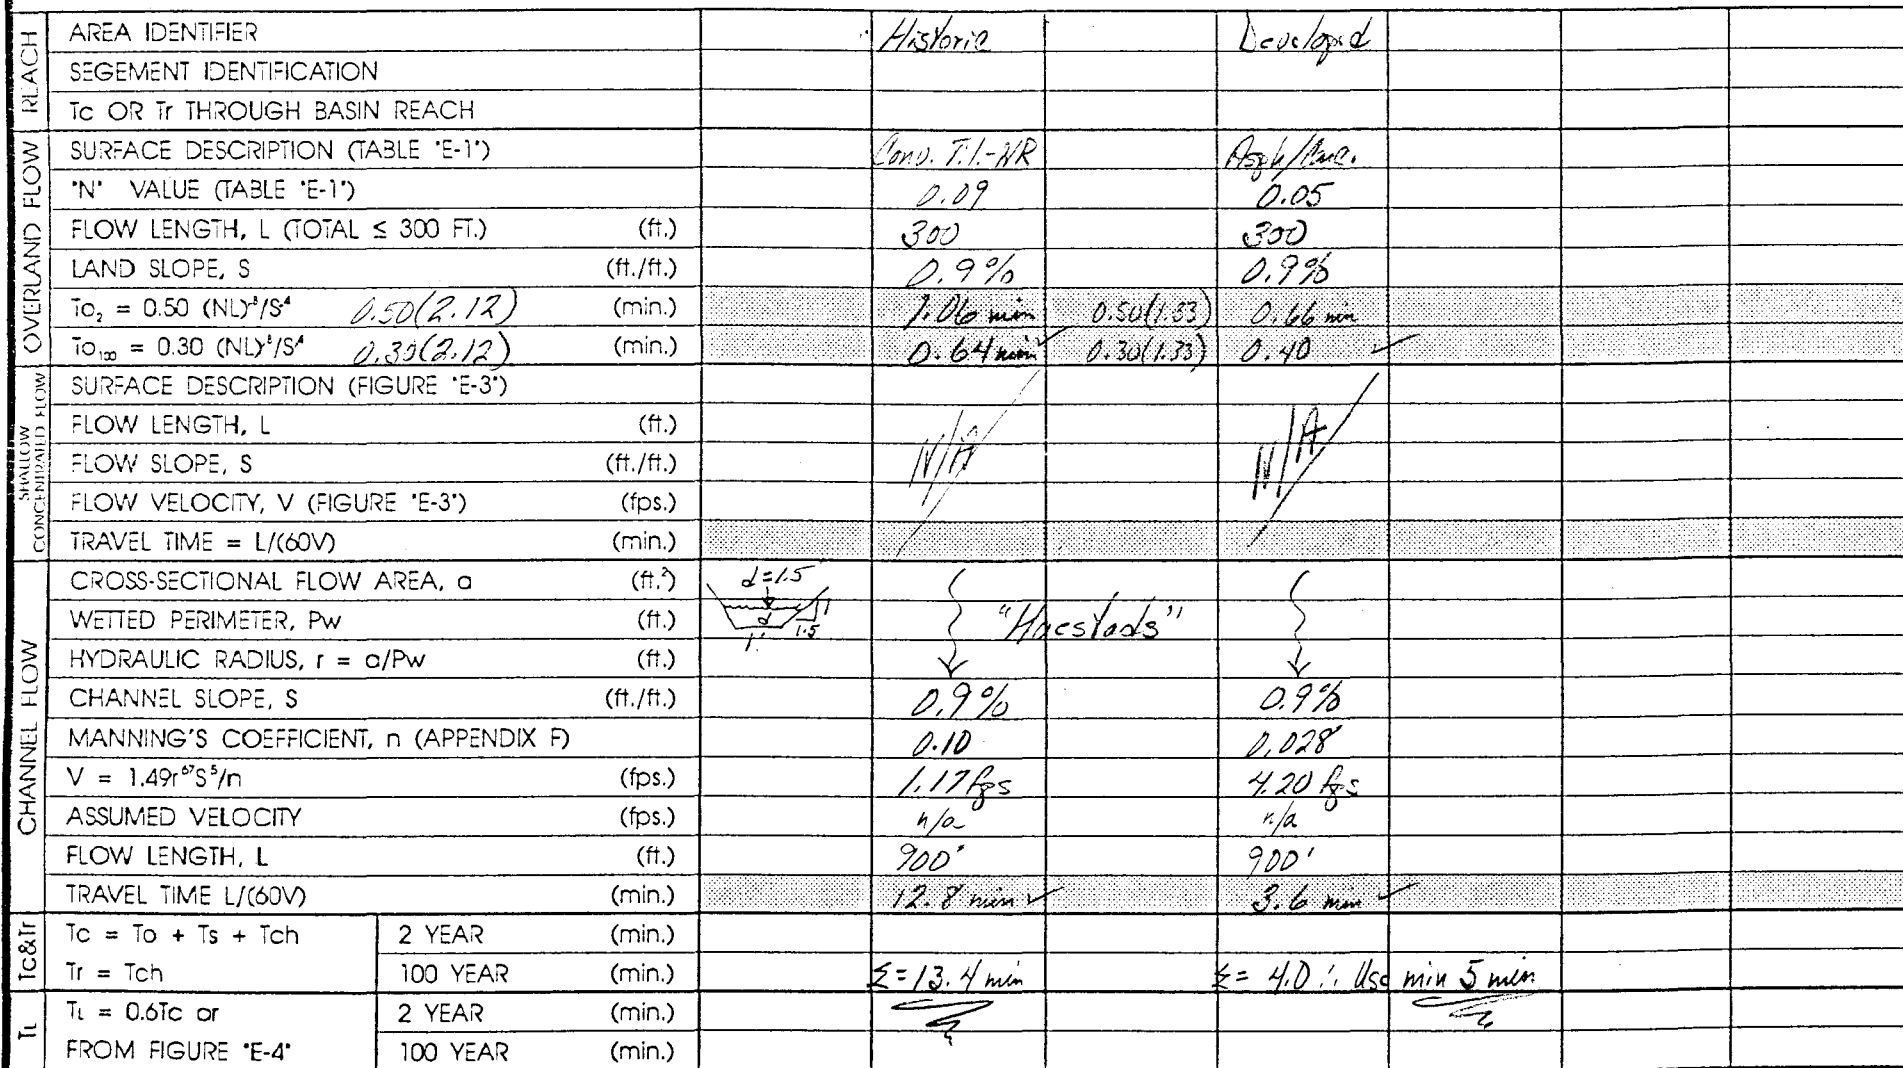 REACH
AREA IDENTIFIER Historic Developed
SEGEMENT IDENTIFICATION
Tc OR Tr THROUGH BASIN REACH
OVERLAND FLOW
SURFACE DESCRIPTION (TABLE "E-1") Conv. T.I.-NR Asph/Conc.
"N" VALUE (TABLE "E-1") 0.09 0.05
FLOW LENGTH, L (TOTAL ≤ 300 FT.) (ft.) 300 300
LAND SLOPE, S (ft./ft.) 0.9% 0.9%
To₂ = 0.50 (NL)·⁸/S·⁴ 0.50(2.12) (min.) 1.06 min 0.50(1.33) 0.66 min
To₁₀₀ = 0.30 (NL)·⁸/S·⁴ 0.30(2.12) (min.) 0.64 min ✓ 0.30(1.33) 0.40 ✓
SHALLOW CONCENTRATED FLOW
SURFACE DESCRIPTION (FIGURE "E-3")
FLOW LENGTH, L (ft.)
FLOW SLOPE, S (ft./ft.) N/A N/A
FLOW VELOCITY, V (FIGURE "E-3") (fps.)
TRAVEL TIME = L/(60V) (min.)
CHANNEL FLOW
CROSS-SECTIONAL FLOW AREA, a (ft.²) d=1.5
WETTED PERIMETER, Pw (ft.) d 1 1' 1.5 "Haestads"
HYDRAULIC RADIUS, r = a/Pw (ft.)
CHANNEL SLOPE, S (ft./ft.) 0.9% 0.9%
MANNING'S COEFFICIENT, n (APPENDIX F) 0.10 0.028
V = 1.49r·⁶⁷S·⁵/n (fps.) 1.17 fps 4.20 fps
ASSUMED VELOCITY (fps.) n/a n/a
FLOW LENGTH, L (ft.) 900' 900'
TRAVEL TIME L/(60V) (min.) 12.8 min ✓ 3.6 min ✓
Tc&Tr
Tc = To + Ts + Tch 2 YEAR (min.)
Tr = Tch 100 YEAR (min.) Σ = 13.4 min Σ = 4.0 ∴ Use min 5 min
TL
TL = 0.6Tc or 2 YEAR (min.)
FROM FIGURE "E-4" 100 YEAR (min.)